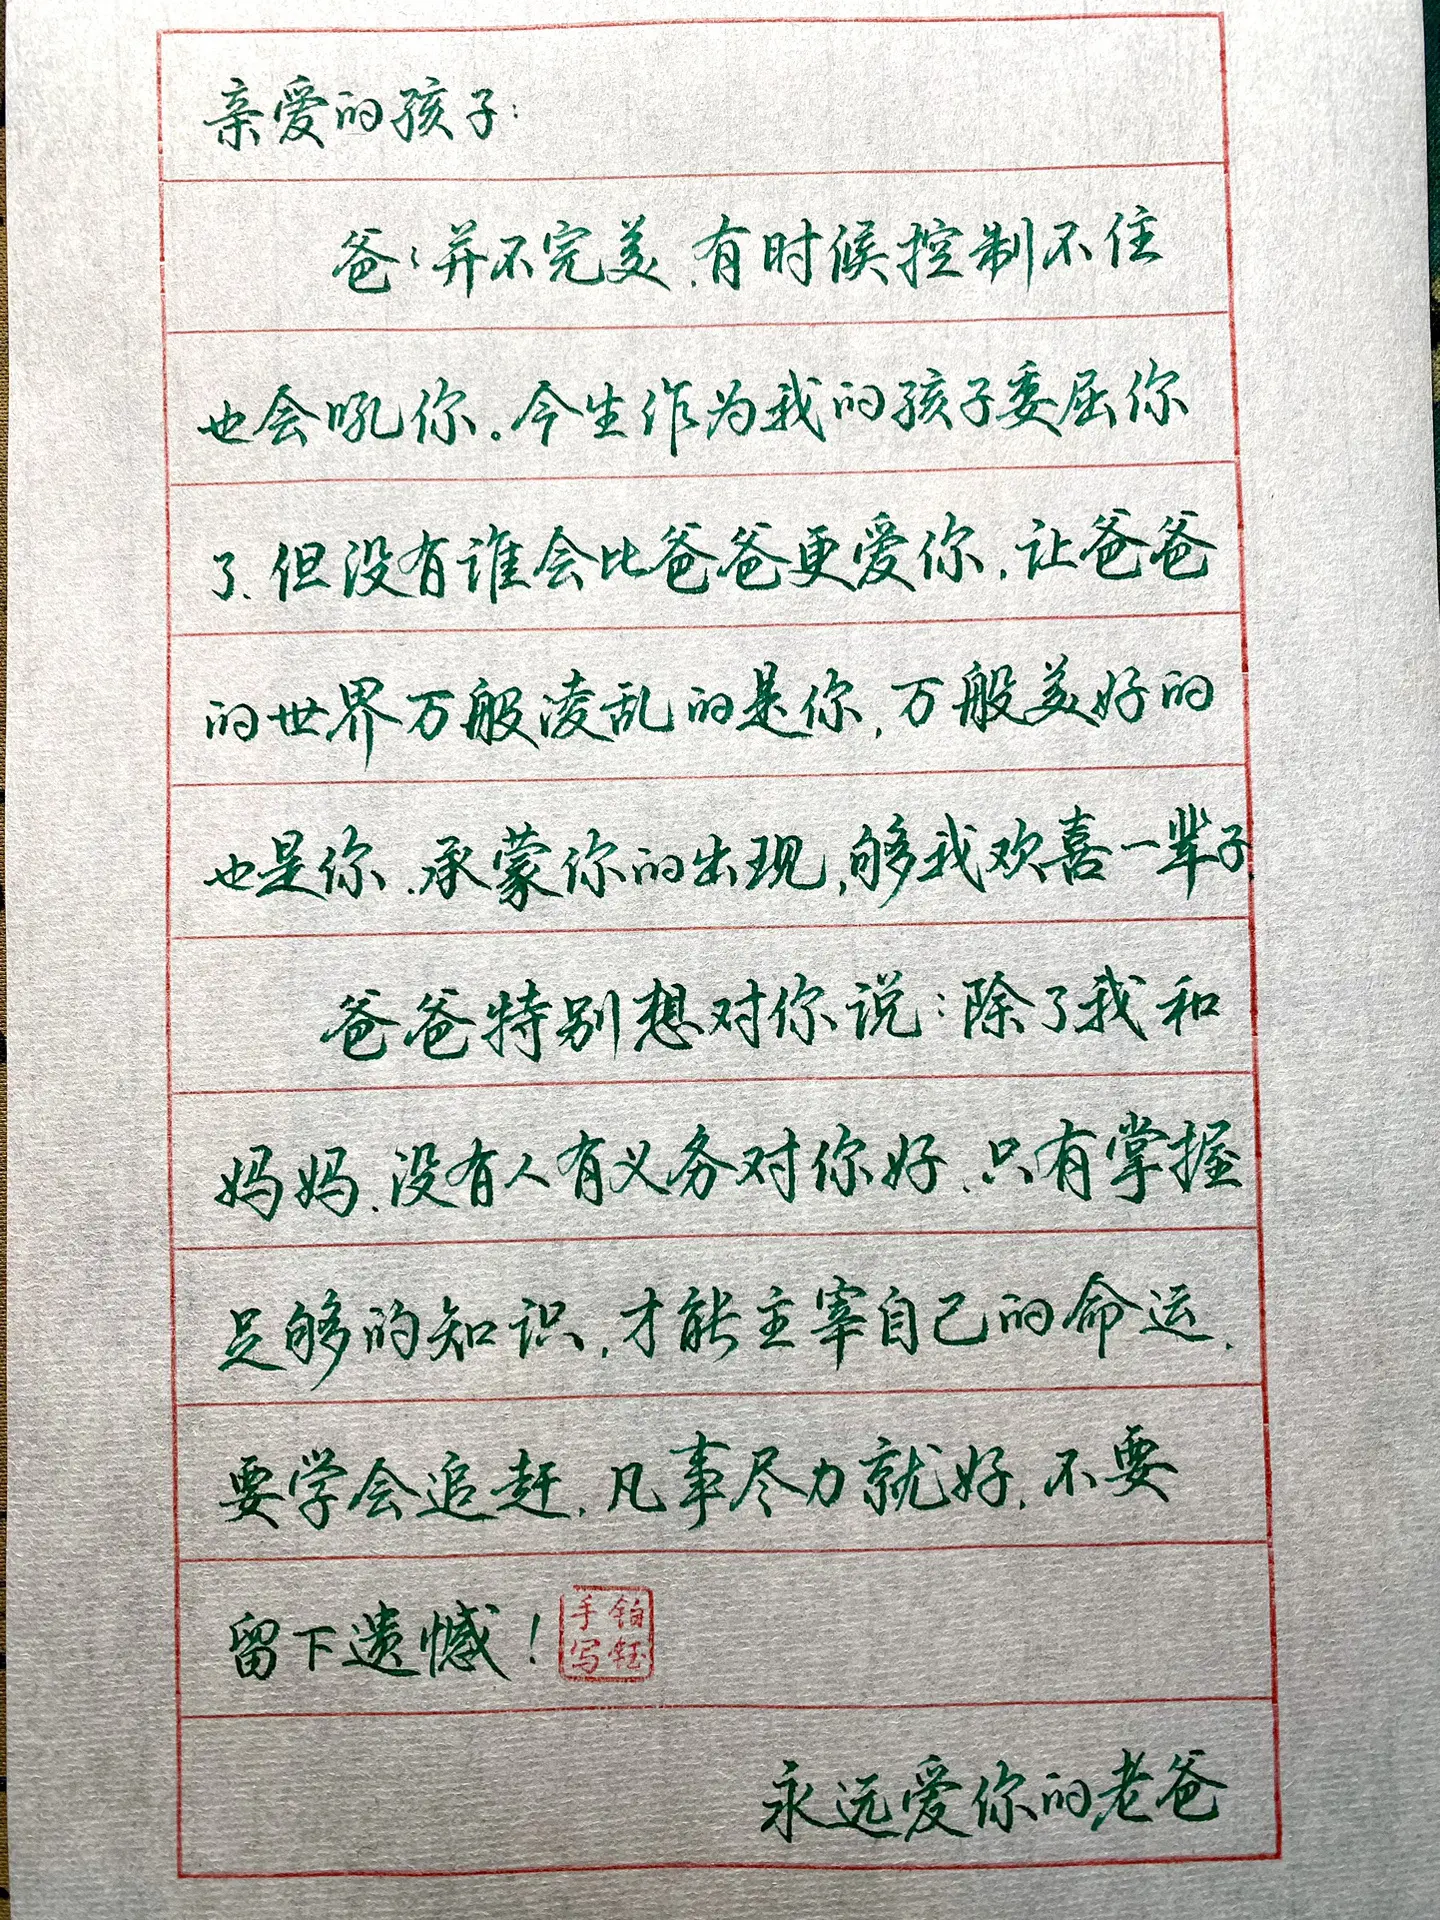 亲爱的孩子:
爸:并不完美,有时候控制不住
也会吼你。今生作为我的孩子委屈你
了、但没有谁会比爸爸更爱你,让爸爸
的世界万般凌乱的是你,万般美好的
也是你,承蒙你的出现,够我欢喜一辈子,
爸爸特别想对你说:除了我和
妈妈,没有人有义务对你好,只有掌握
足够的知识,才能主宰自己的命运,
要学会追赶,凡事尽力就好,不要
留下遗憾!
铂钰手写
永远爱你的老爸